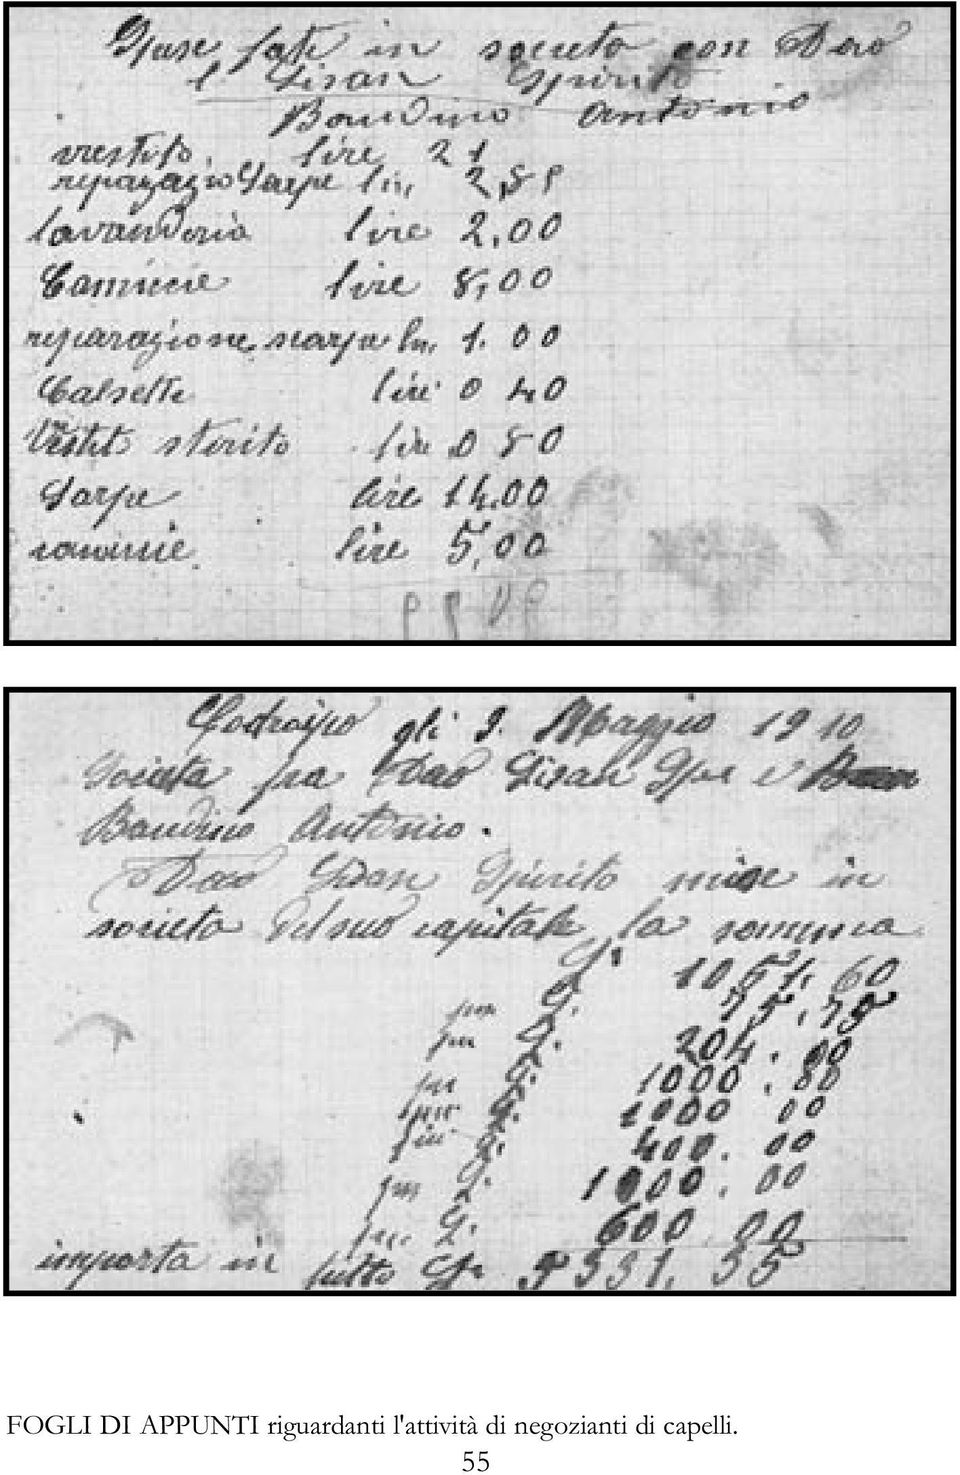 Spese fate in societa con Deao
l Lisan Spirito
Baudino Antonio
vestito, lire 21
repazazio Scarpe lir,
lavanderia lire 2,00
Camicie lire 8,00
reparazione scarpe lir, 1.00
Calsette lire 0 40
Vestit stirito lire 0 80
Scarpe lire 14.00
camicie lire 5,00
Codroipo gli 9. Maggio 1910
Societa fra Deao Lisan Spir e
Baudino Antonio.
Deao Lisan Spirito mise in
societa del suo capitale la somma
L. 1051. 60
piu L. 75. 75
piu L. 204. 00
piu L. 1000. 00
piu L. 1000 00
piu L. 400. 00
piu L. 1000. 00
piu L. 600. 00
importa in tutto L. 5331. 35
FOGLI DI APPUNTI riguardanti l'attività di negozianti di capelli.
55